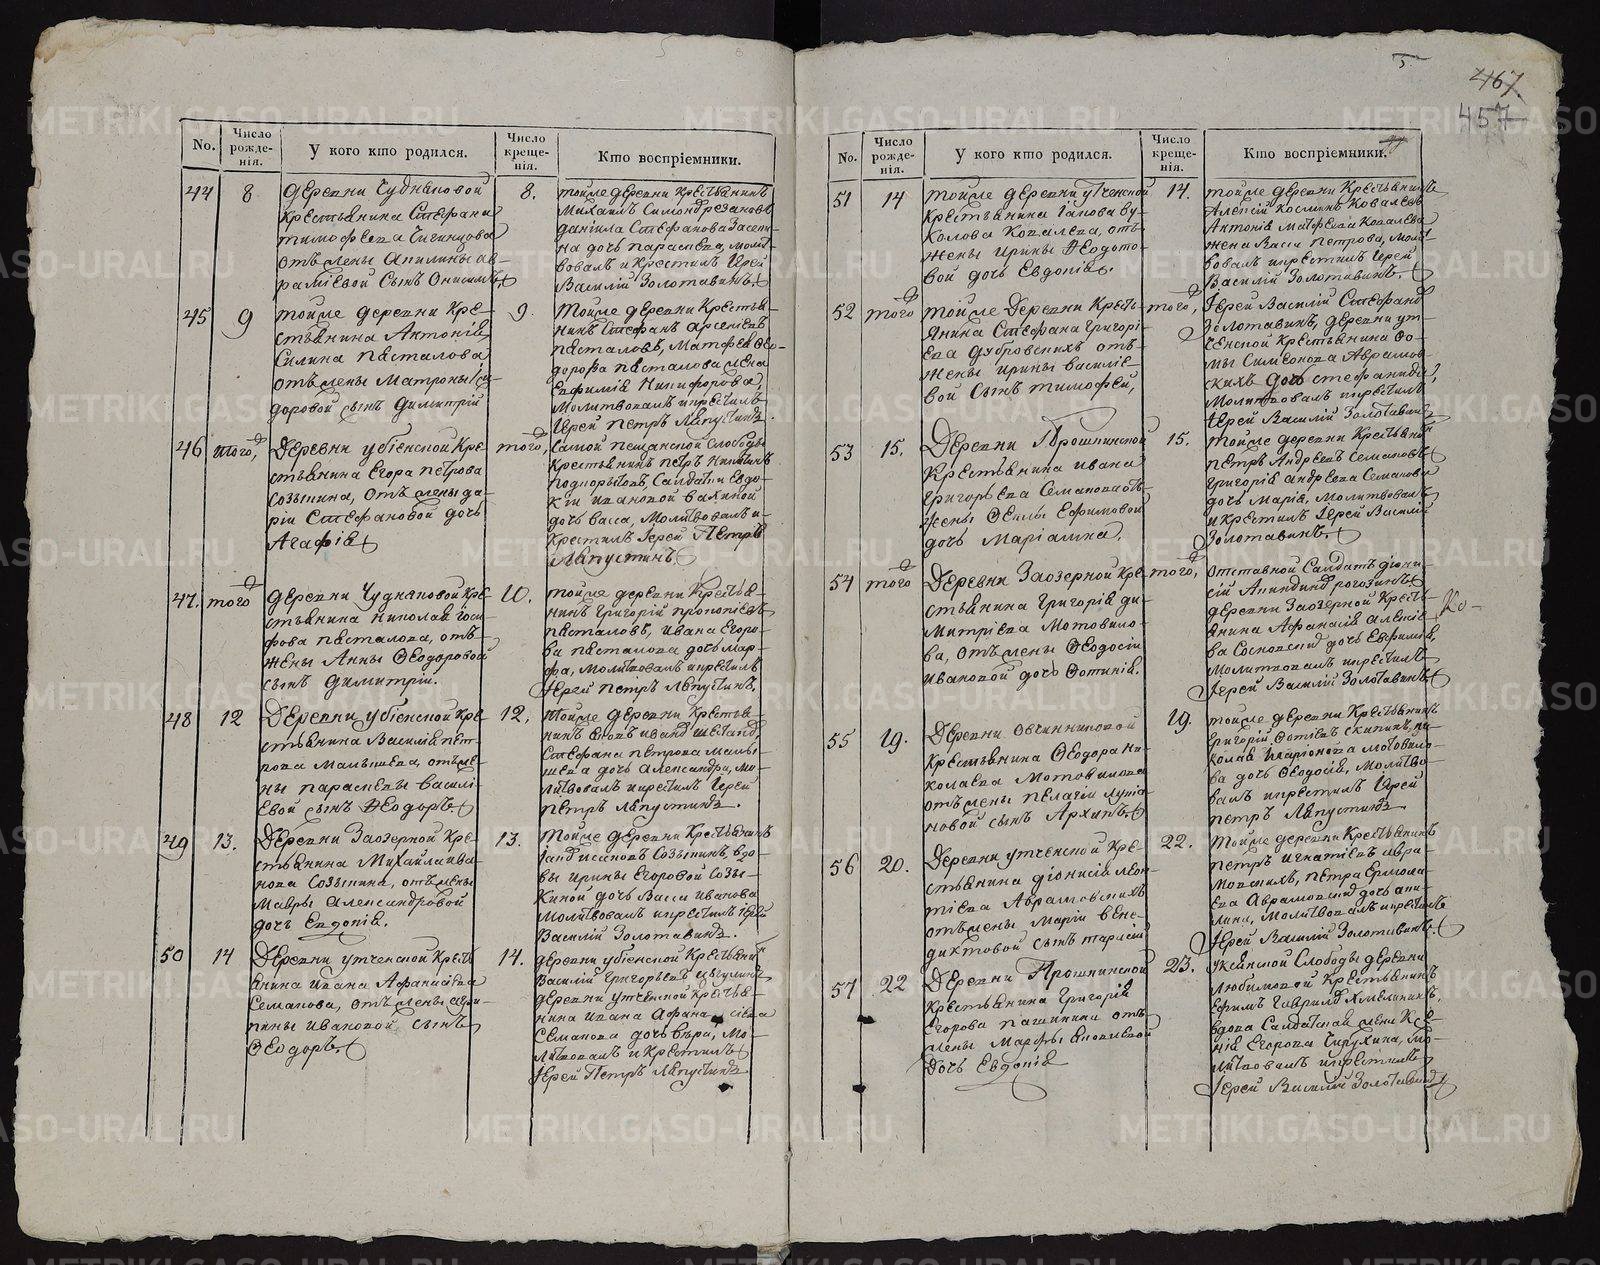 5
467.
457
No.
Число рожде-нія.
У кого кто родился.
Число креще-нія.
Кто воспріемники.
44
8
деревни Чудиновой
крестьянина Стефана
тимофеева
отъ жены
сынъ
8.
тойже деревни крестьянинъ
Михаилъ
даніила Стефанова
дочь параскева, молит-
вовалъ и крестилъ Іерей
Василій Золотавинъ.
45
9
тойже деревни кре-
стьянина Антонія
Силина пасталова
отъ жены Матроны
доровой сынъ Димитрій
9.
Тойже деревни крестья-
нинъ Стефанъ
пасталовъ, Матфея Ѳео-
дорова пасталова жена
Евфимія Никифорова,
Молитвовалъ и крестилъ
Іерей Петръ Лапустинъ.
46
того,
Деревни убіенской кре-
стьянина Егора петрова
Созыкина, отъ жены да-
ріи Стефановой дочь
Агафія
того,
Самой пещанской Слободы
крестьянинъ петръ
Салдатки Евдо-
кіи ивановой
дочь васса, Молитвовалъ и
крестилъ Іерей Петръ
Лапустинъ
47.
того
деревни Чудиновой кре-
стьянина Николая Іоси-
фова пасталова, отъ
жены Анны Ѳеодоровой
сынъ димитрій.
10.
тойже деревни крестья-
нинъ григорій прокопіевъ
пасталовъ, ивана егоро-
ва пасталова дочь мар-
фа, молитвовалъ и крестилъ
Іерей петръ Лапустинъ.
48
12
Деревни убіенской кре-
стьянина Василія пет-
рова Малышева, отъ же-
ны параскевы василі-
евой сынъ Ѳеодоръ
12.
тойже деревни крестья-
нинъ
Стефана петрова Малы-
шева дочь александра, мо-
литвовалъ и крестилъ Іерей
петръ Лапустинъ.
49
13.
Деревни Заозерной кре-
стьянина Михайла ива-
нова Созыкина, отъ жены
Мавры александровой
дочь Евдокія.
13.
Тойже деревни крестьянинъ
Созыкинъ, вдо-
вы ирины Егоровой Созы-
киной дочь Васса иванова
молитвовалъ и крестилъ Іерей
Василій Золотавинъ.
50
14
Деревни утченской кресть-
янина ивана Афанасіева
Семакова, отъ жены
ивановой сынъ
Ѳеодоръ.
14.
деревни убіенской крестьянинъ
Василій григорьевъ
деревни утченской крестья-
нина ивана Афанасіева
Семакова дочь вѣра, мо-
литвовалъ и крестилъ
Іерей Петръ Лапустинъ
No.
Число рожде-нія.
У кого кто родился.
Число креще-нія.
Кто воспріемники.
51
14
тойже деревни утченской
крестьянина
Ковалева, отъ
жены Ирины Ѳеодото-
вой дочь Евдокія.
14.
тойже деревни крестьянинъ
Алексій Космин Ковалевъ
Антонія Матфеева Ковалева
жена Васса петрова, молит-
вовалъ и крестилъ Іерей
Василій Золотавинъ.
52
того
тойже Деревни кресть-
янина Стефана григорі-
ева дубровскихъ отъ
жены ирины василіе-
вой сынъ тимофей,
того,
Іерей Василій
Золотавинъ, деревни ут-
ченской крестьянина Ѳо-
мы Симеонова Аврамов-
скихъ дочь стефанида,
Молитвовалъ и крестилъ
Іерей Василій Золотавинъ
53
15.
Деревни Прошкинской
крестьянина ивана
григорьева Семакова отъ
жены Ѳеклы Ефимовой
дочь Маріамна.
15.
тойже деревни крестьянинъ
петръ Андреевъ Семаковъ
григорія андреева Семакова
дочь марія, молитвовалъ
и крестилъ Іерей Василій
Золотавинъ.
54
того
Деревни Заозерной кре-
стьянина григорія ди-
митріева Мотовило-
ва, отъ жены Ѳеодосіи
ивановой дочь Фотинія.
того,
отставной Салдатъ діони-
сій
деревни Заозерной кресть-
янина Афанасія алексіе-
ва дочь Евфимія,
молитвовалъ и крестилъ
Іерей Василій Золотавинъ
55
19.
Деревни Овчинниковой
крестьянина Ѳеодора ни-
колаева Мотовилова
отъ жены пелагіи лукі-
новой сынъ Архипъ
19.
тойже деревни крестьянинъ
григорій Фотіевъ
мотовило-
ва дочь Ѳеодосія, молитво-
валъ и крестилъ Іерей
петръ Лапустинъ
56
20.
Деревни утченской кре-
стьянина діонисія леон-
тіева Аврамовскихъ
отъ жены Маріи вене-
диктовой сынъ тарасій
22.
тойже деревни крестьянинъ
петръ игнатіевъ авра-
мовскихъ, петра Ермола-
ева Аврамовскихъ дочь аки-
лина, молитвовалъ и крестилъ
Іерей Василій Золотавинъ.
57
22
Деревни Прошкинской
крестьянина григорія
Егорова пашкина отъ
жены Марфы
Дочь Евдокія
23.
Уксянской Слободы деревни
любимовой крестьянинъ
Ефимъ гавриловъ
вдова Салдатская жена Ксе-
нія Егорова мо-
литвовалъ и крестилъ
Іерей Василій Золотавинъ